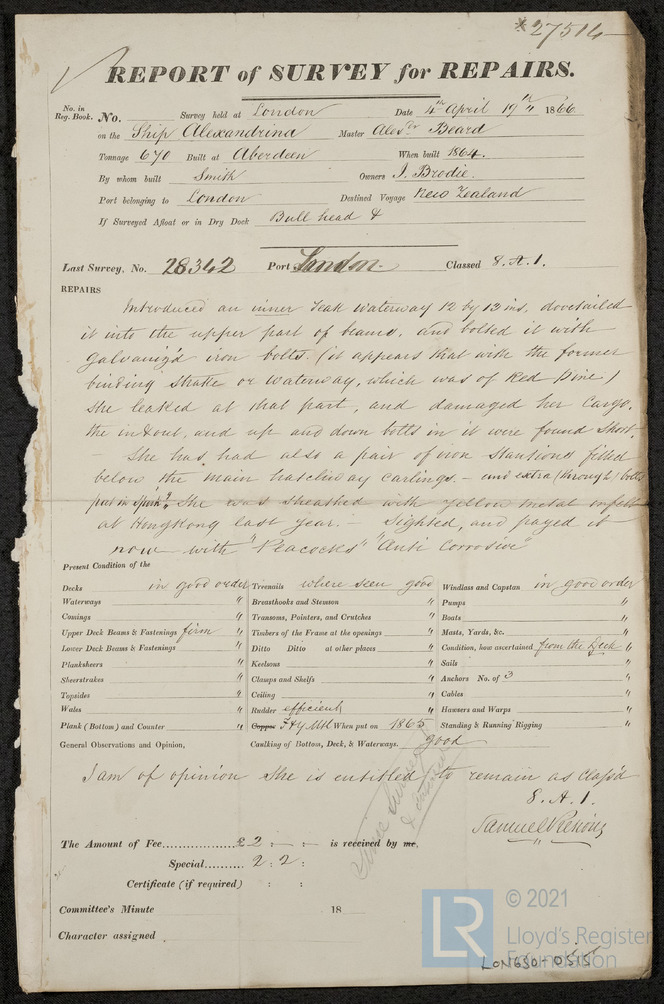 *27514
REPORT of SURVEY for REPAIRS.
No. in Reg. Book. No. Survey held at London Date 4th April 19th 4 1866
on the Ship Alexandrina Master Alexdr Beard
Tonnage 670 Built at Aberdeen When built 1864.
By whom built Smith Owners J. Brodie.
Port belonging to London Destined Voyage New Zealand
If Surveyed Afloat or in Dry Dock Bull head &
Last Survey, No. 28342 Port London. Classed 8.A.1.
REPAIRS
Introduced an inner Teak waterway 12 by 12 ins, dovetailed
it into the upper part of beams, and bolted it with
galvaniz'd iron bolts. (it appears that with the former
binding Strake or waterway, which was of Red Pine)
She leaked at that part, and damaged her Cargo.
the in & out, and up and down bolts in it were found Short.
- She has had also a pair of iron Stantions fitted
below the main hatchway carlings. - and extra (through) bolts
put in She was Sheathed with yellow metal on felt
at Hong Kong last year. - Sighted, and payed it
now with "Peacock's" "Anti Corrosive"
Present Condition of the
Decks in good order Treenails where seen good Windlass and Capstan in good order
Waterways " Breasthooks and Stemson " Pumps "
Comings " Transoms, Pointers, and Crutches " Boats "
Upper Deck Beams & Fastenings firm " Timbers of the Frame at the openings " Masts, Yards, &c. "
Lower Deck Beams & Fastenings " Ditto Ditto at other places " Condition, how ascertained from the Deck "
Planksheers " Keelsons " Sails "
Sheerstrakes " Clamps and Shelfs " Anchors No. of 3 "
Topsides " Ceiling " Cables "
Wales " Rudder efficient " Hawsers and Warps "
Plank (Bottom) and Counter " Copper F & Y Mtl When put on 1865 Standing & Running Rigging "
General Observations and Opinion, Caulking of Bottom, Deck, & Waterways. good
I am of opinion She is entitled to remain as Class'd
8.A.1.
The Amount of Fee £2 : - : - is received by me,
Special 2 : 2 :
Certificate (if required) : :
Committee's Minute 18
Character assigned
LR © 2021
Lloyd's Register
Foundation
LON630-0515